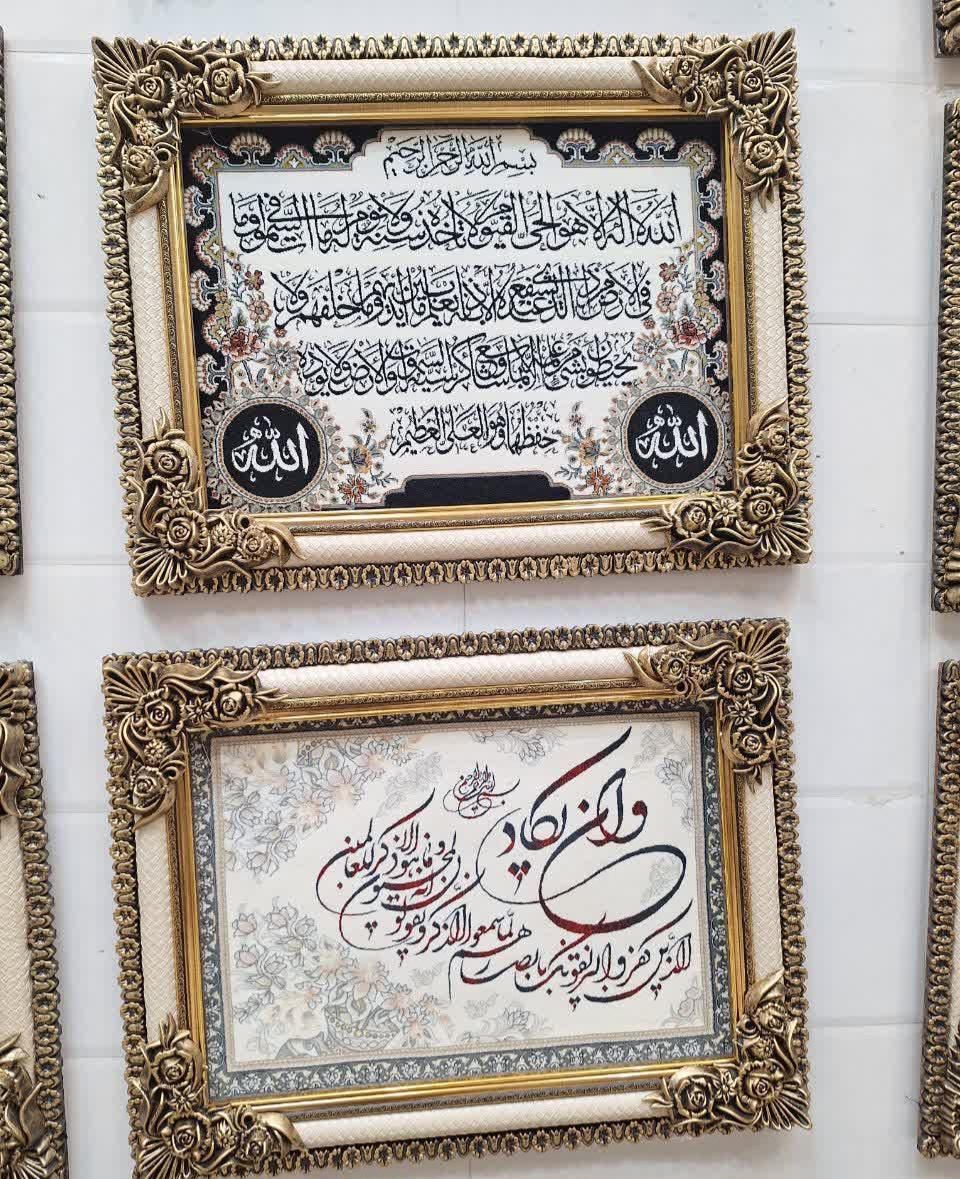 بسم الله الرحمن الرحيم
الله لا اله الا هو الحي القيوم لا تاخذه سنة ولا نوم له ما في السموات وما
في الارض من ذا الذي يشفع عنده الا باذنه يعلم ما بين ايديهم وما خلفهم ولا
يحيطون بشيء من علمه الا بما شاء وسع كرسيه السموات والارض ولا يؤده
حفظهما وهو العلي العظيم
الله
الله
بسم الله الرحمن الرحيم
وان يكاد
الذين كفروا ليزلقونك بابصارهم لمّا سمعوا الذكر و يقولون
انه لمجنون
و ما هو الا ذكر للعالمين